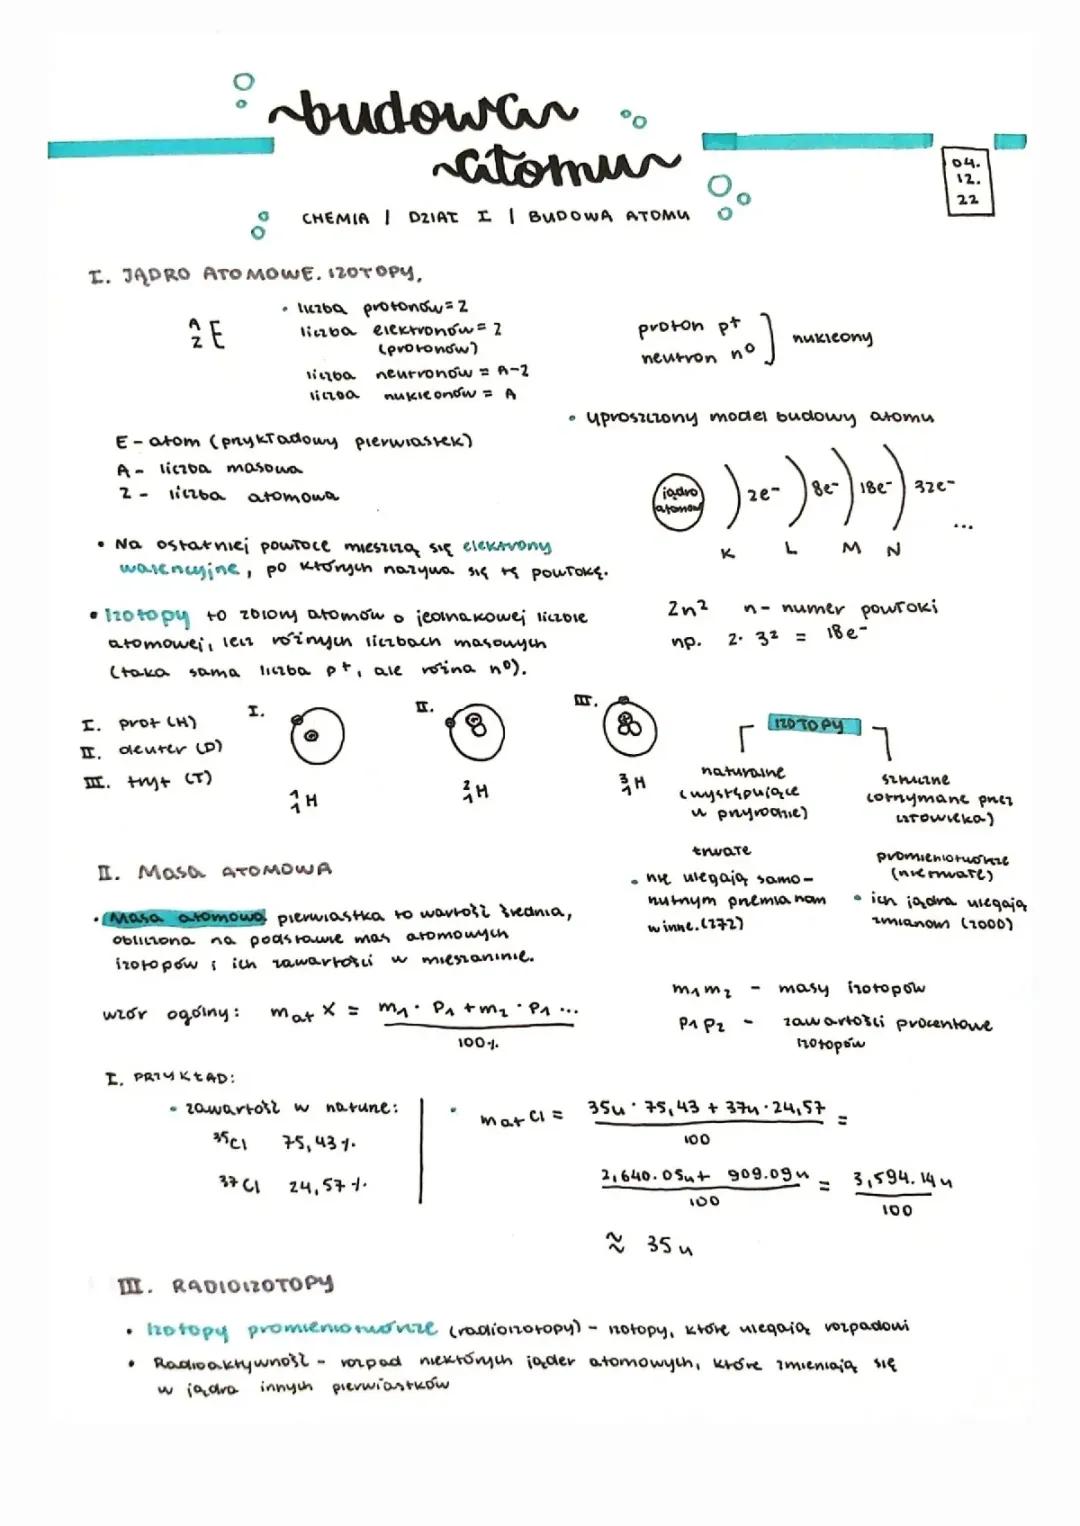 budowa
atomu
04.
12.
22
CHEMIA | DZIAŁ I | BUDOWA ATOMU
I. JĄDRO ATOMOWE. IZOTOPY.
A
Z E
• liczba protonów = Z
liczba elektronów = Z
(protonów)
liczba neutronów = A-Z
liczba nukleonów = A
proton p+
neutron n⁰
nukleony
E - atom (przykładowy pierwiastek)
A - liczba masowa
Z - liczba atomowa
• uproszczony model budowy atomu
jądro
atomowe
2e⁻ 8e⁻ 18e⁻ 32e⁻ ...
K L M N
• Na ostatniej powłoce mieszczą się elektrony
walencyjne, po których nazywa się tę powłokę.
2n² n - numer powłoki
np. 2 · 3² = 18e⁻
• Izotopy to zbiory atomów o jednakowej liczbie
atomowej, lecz różnych liczbach masowych
(taka sama liczba p+, ale różna n⁰).
I. prot (H)
II. deuter (D)
III. tryt (T)
I. II. III.
¹₁H ²₁H ³₁H
IZOTOPY
naturalne
(występujące
w przyrodzie)
trwałe
• nie ulegają samo-
rzutnym przemianom
w inne. (272)
sztuczne
(otrzymane przez
człowieka)
promieniotwórcze
(nietrwałe)
• ich jądra ulegają
zmianom (2000)
II. Masa ATOMOWA
• Masa atomowa pierwiastka to wartość średnia,
obliczona na podstawie mas atomowych
izotopów i ich zawartości w mieszaninie.
wzór ogólny: mat X = m₁ · P₁ + m₂ · P₁ ...
100%
m₁ m₂ - masy izotopów
P₁ P₂ - zawartości procentowe
izotopów
I. PRZYKŁAD:
• zawartość w naturze:
³⁵Cl 75,43%.
³⁷Cl 24,57%.
• mat Cl = 35u · 75,43 + 37u · 24,57 =
100
2,640.05u + 909.09u = 3,594.14u
100 100
≈ 35u
III. RADIOIZOTOPY
• Izotopy promieniotwórcze (radioizotopy) - izotopy, które ulegają rozpadowi
• Radioaktywność - rozpad niektórych jąder atomowych, które zmieniają się
w jądra innych pierwiastków